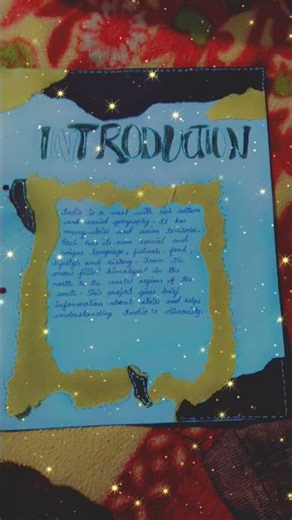 INTRODUCTION
India is a vast with rich culture
and varied geography. It has
many states and union territories.
Each has its own special and
unique language, festivals, food,
lifestyle and history. From the
snow filled himalayas in the
north to the coastal regions of the
south. This project gives brief
information about states and helps
understanding India's diversity.